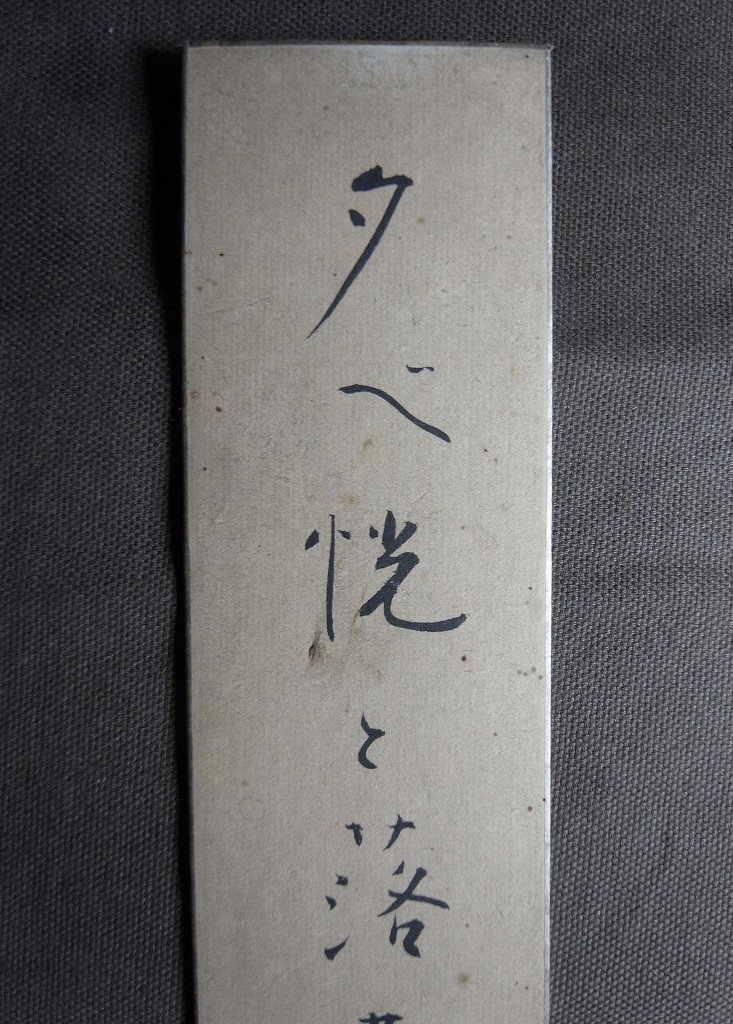 夕べ恍と落